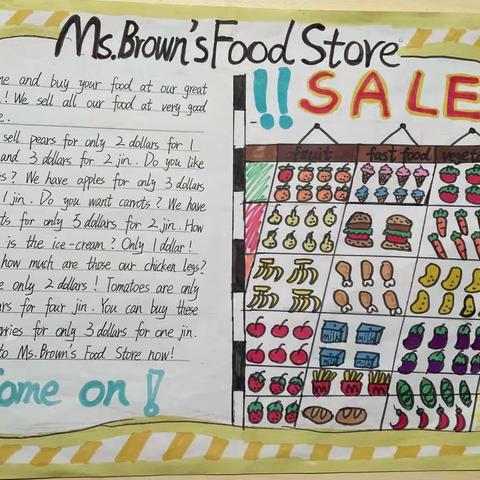 Ms. Brown's Food Store
me and buy your food at our great
! We sell all our food at very good
sell pears for only 2 dollars for 1
and 3 dollars for 2 jin. Do you like
s? We have apples for only 3 dollars
1 jin. Do you want carrots? We have
ts for only 5 dollars for 2 jin. How
is the ice-cream? Only 1 dollar!
how much are those our chicken legs?
e only 2 dollars! Tomatoes are only
ars for four jin. You can buy these
rries for only 3 dollars for one jin.
to Ms. Brown's Food Store now!
ome on!
!! SALE
fruit fast food veget
milk milk
milk milk